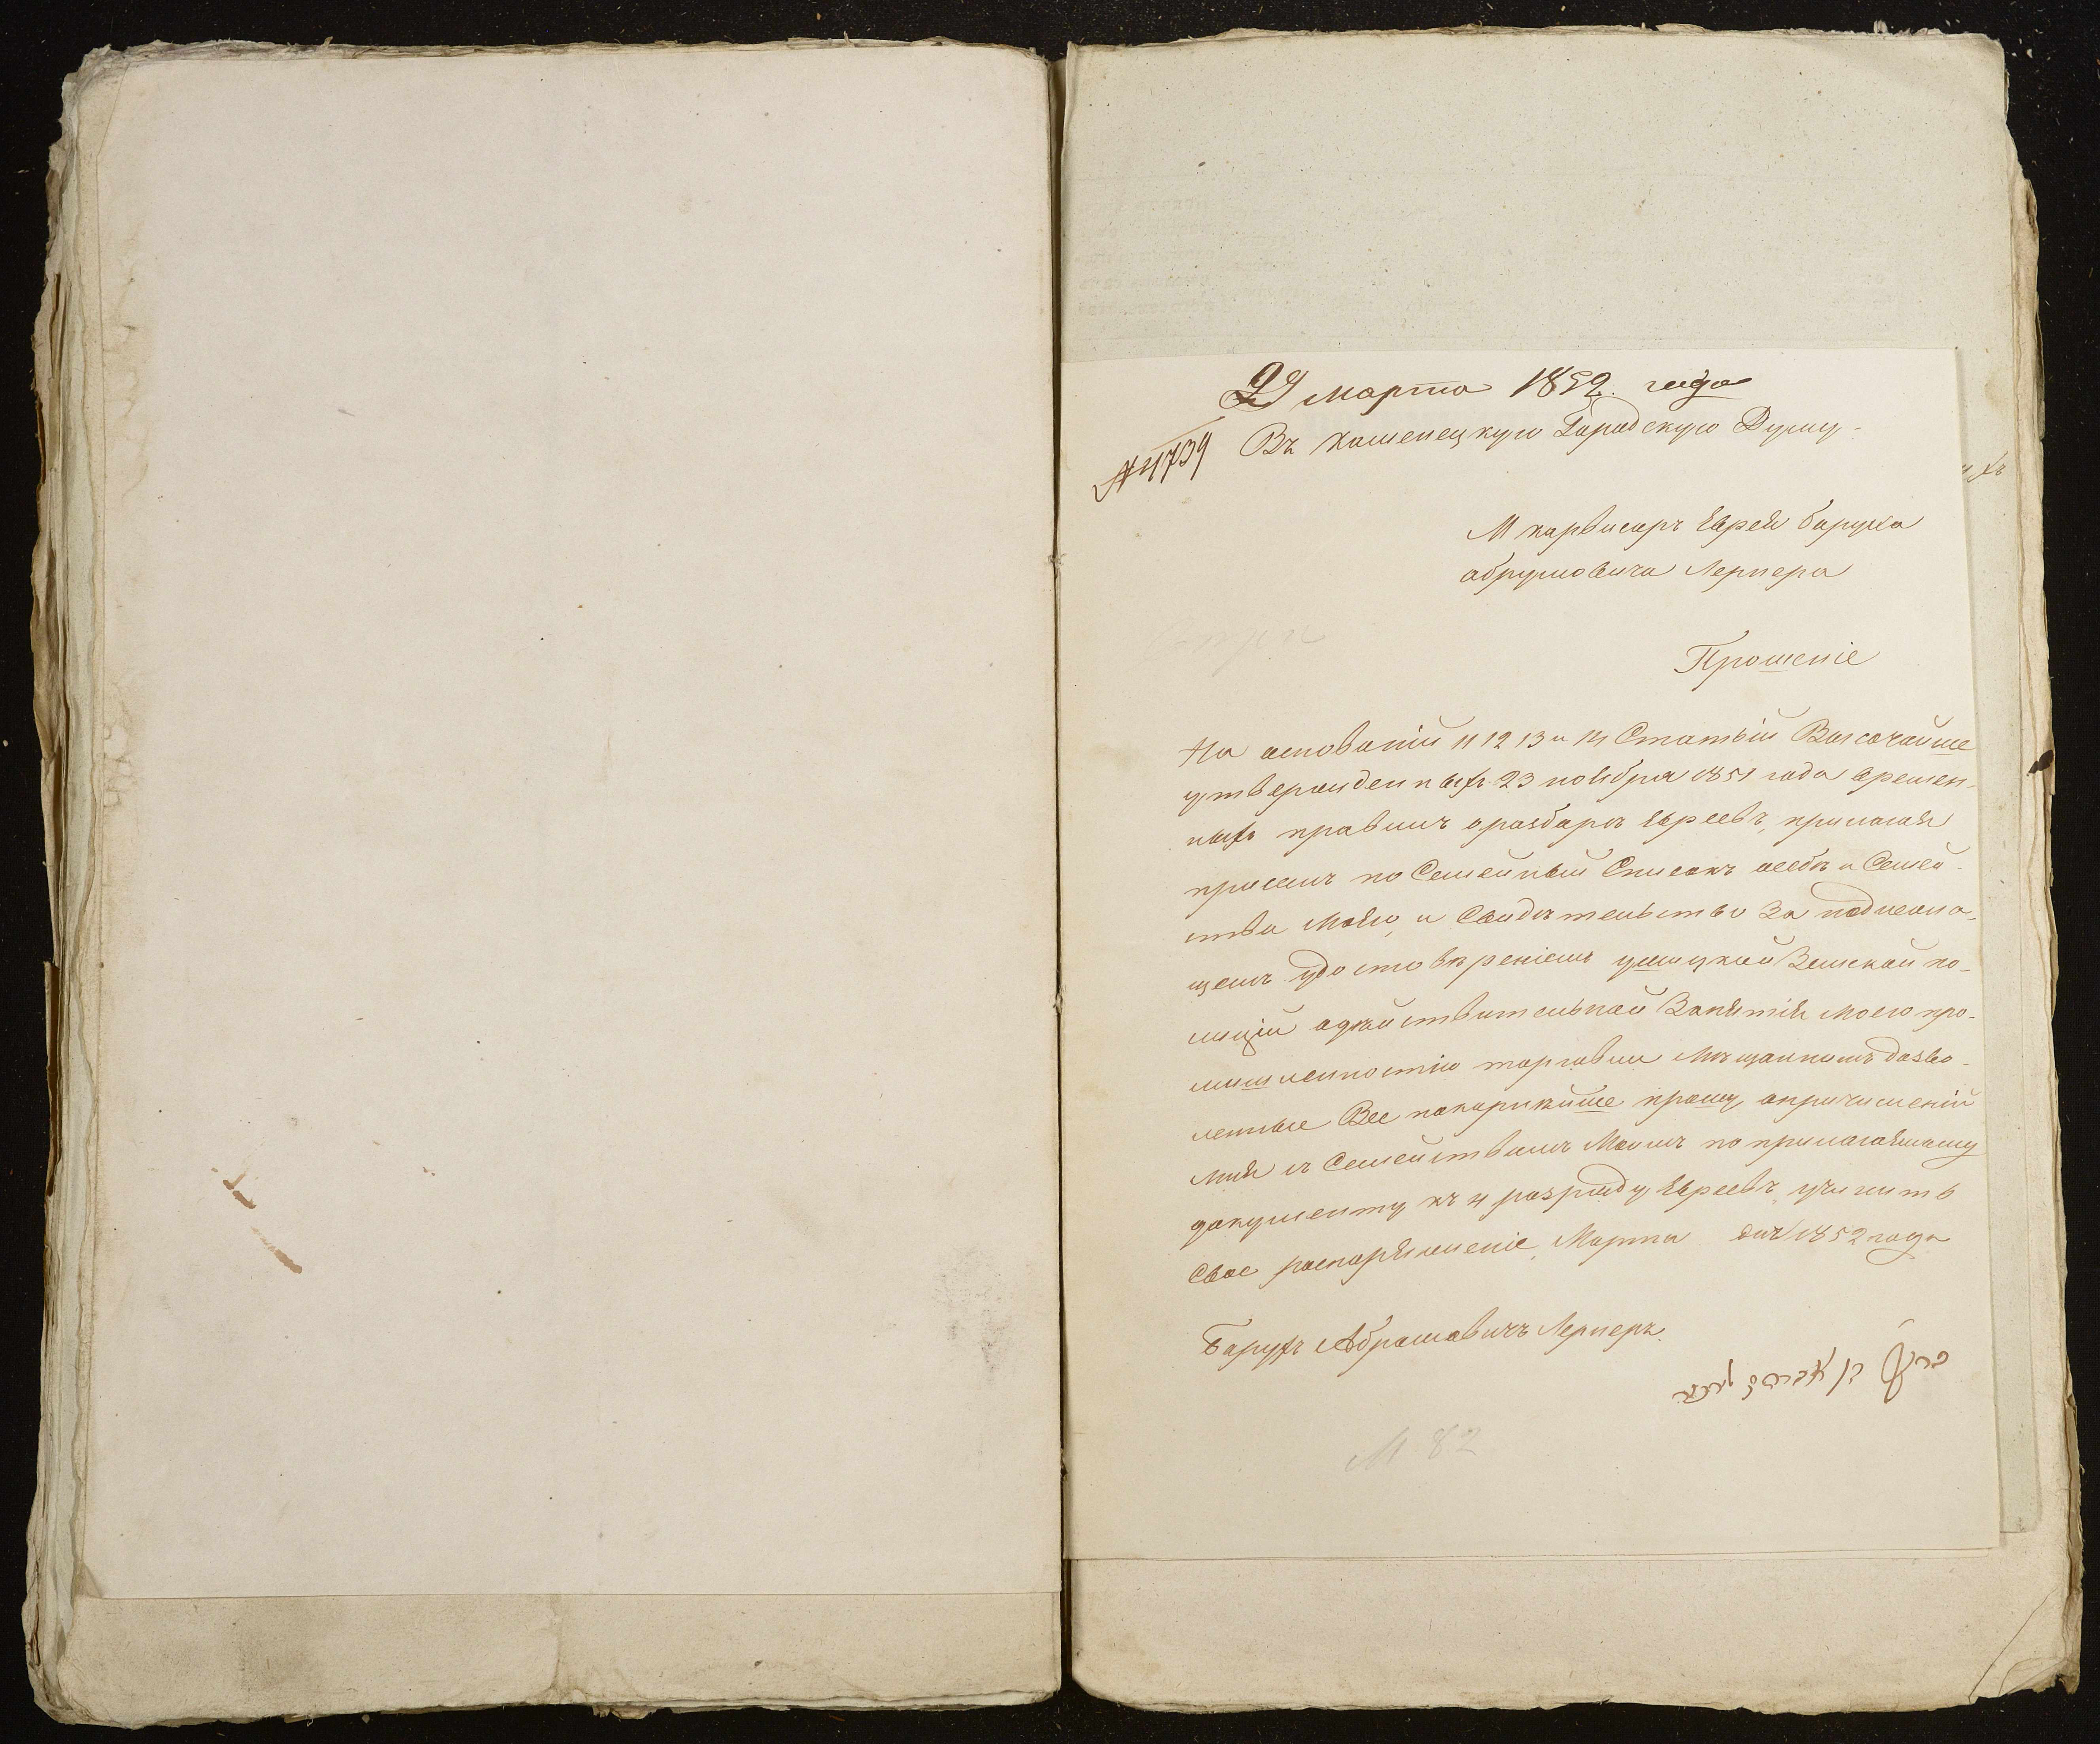 29 марта 1852. года
№ 4739
Въ Каменецкую Городскую Думу
М Карвасаръ Еврея Баруха
Абрумовича Лернера
Прошеніе
На основаніи 11 12 13 и 14 Статьій Высочайше
утвержденныхъ 23 ноября 1851 года времен-
ныхъ правилъ оразборѣ Евреевъ, прилагая
присемъ по Семейный Списокъ осебѣ и Семей-
ства Моего, и Свидѣтельство За
удостовѣреніемъ ушицкой Земской по-
лиціи одѣйствительной Занятія Моего про-
мишленностію торговли Мѣщанкимъ дозво-
ленные Все покорнѣйше прошу, опричисленій
Мня съ Семействомъ Моимъ по прилагаямому
документу къ 4 разряду Евреевъ, учинить
Свое распоряженіе, Марта дня 1852 года
Барухъ Абрамовичъ Лернеръ
ברוך בן אברהם לערנער
М 82